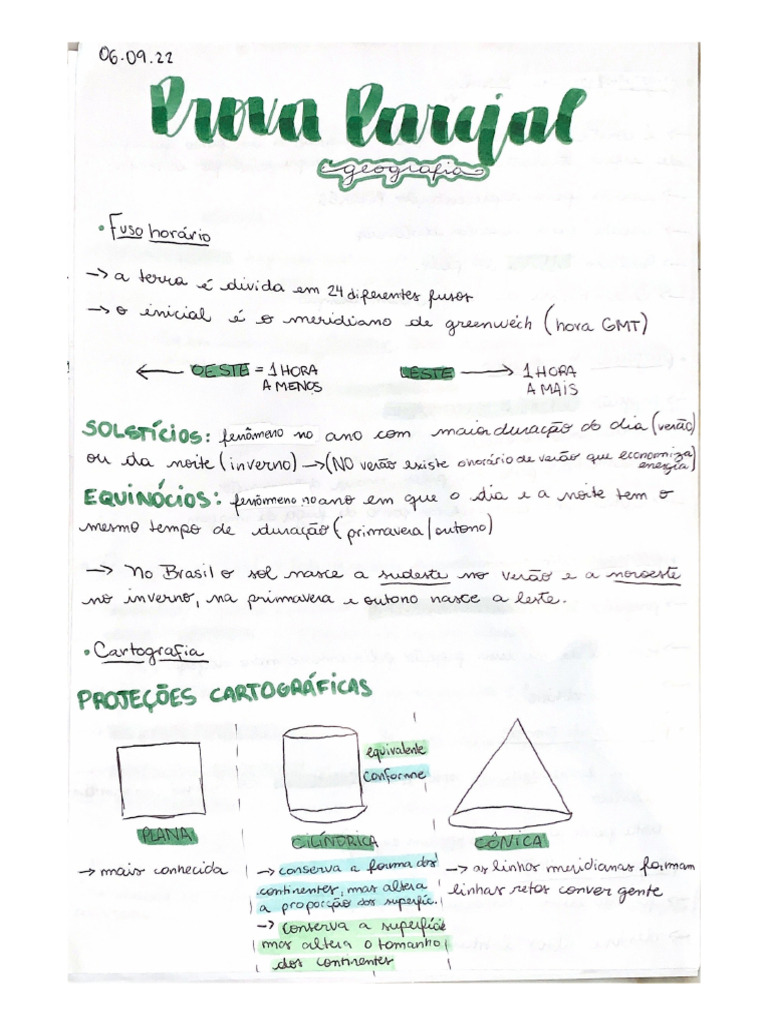 06.09.22
Prova Parcial
geografia
• Fuso horário
→ a terra é divida em 24 diferentes fusos
→ o inicial é o meridiano de greenwech (hora GMT)
← OESTE = 1 HORA A MENOS
LESTE → 1 HORA A MAIS
SOLSTÍCIOS: fenômeno no ano com maior duração do dia (verão)
ou da noite (inverno) → (NO verão existe o horário de verão que economiza energia)
EQUINÓCIOS: fenômeno no ano em que o dia e a noite tem o
mesmo tempo de duração (primavera/outono)
→ No Brasil o sol nasce a sudeste no verão e a noroeste
no inverno, na primavera e outono nasce a leste.
• Cartografia
PROJEÇÕES CARTOGRÁFICAS
PLANA
→ mais conhecida
equivalente
conforme
CILÍNDRICA
→ conserva a forma dos
continentes, mas altera
a proporção dos superfíc.
→ conserva a superfície
mas altera o tamanho
dos continentes
CÔNICA
→ as linhas meridianas formam
linhas retas convergente